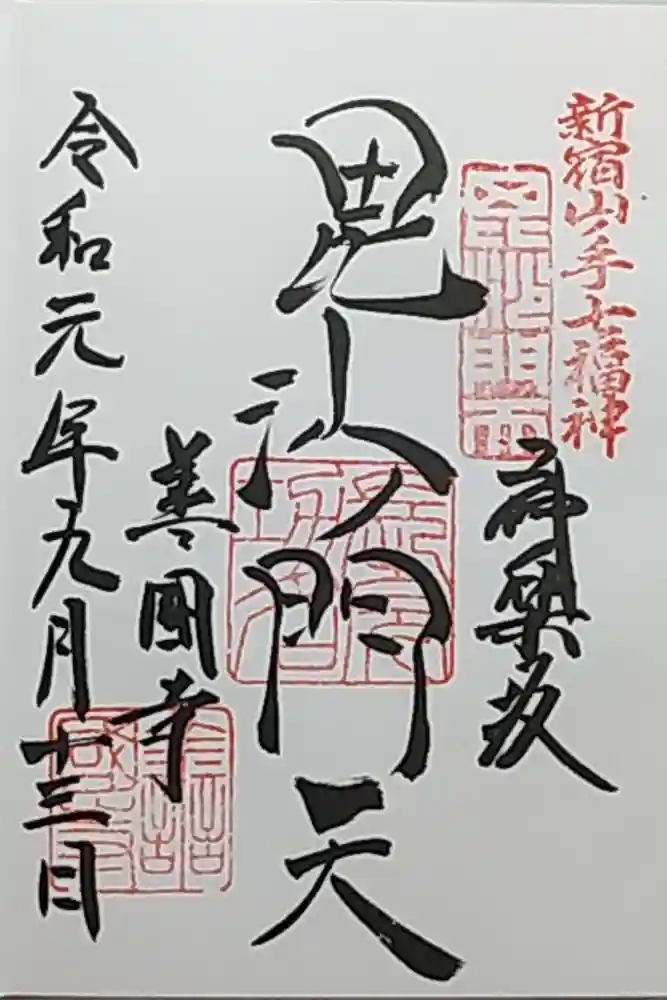 新宿山ノ手七福神
神楽坂
毘沙門天
善國寺
令和元年九月十三日